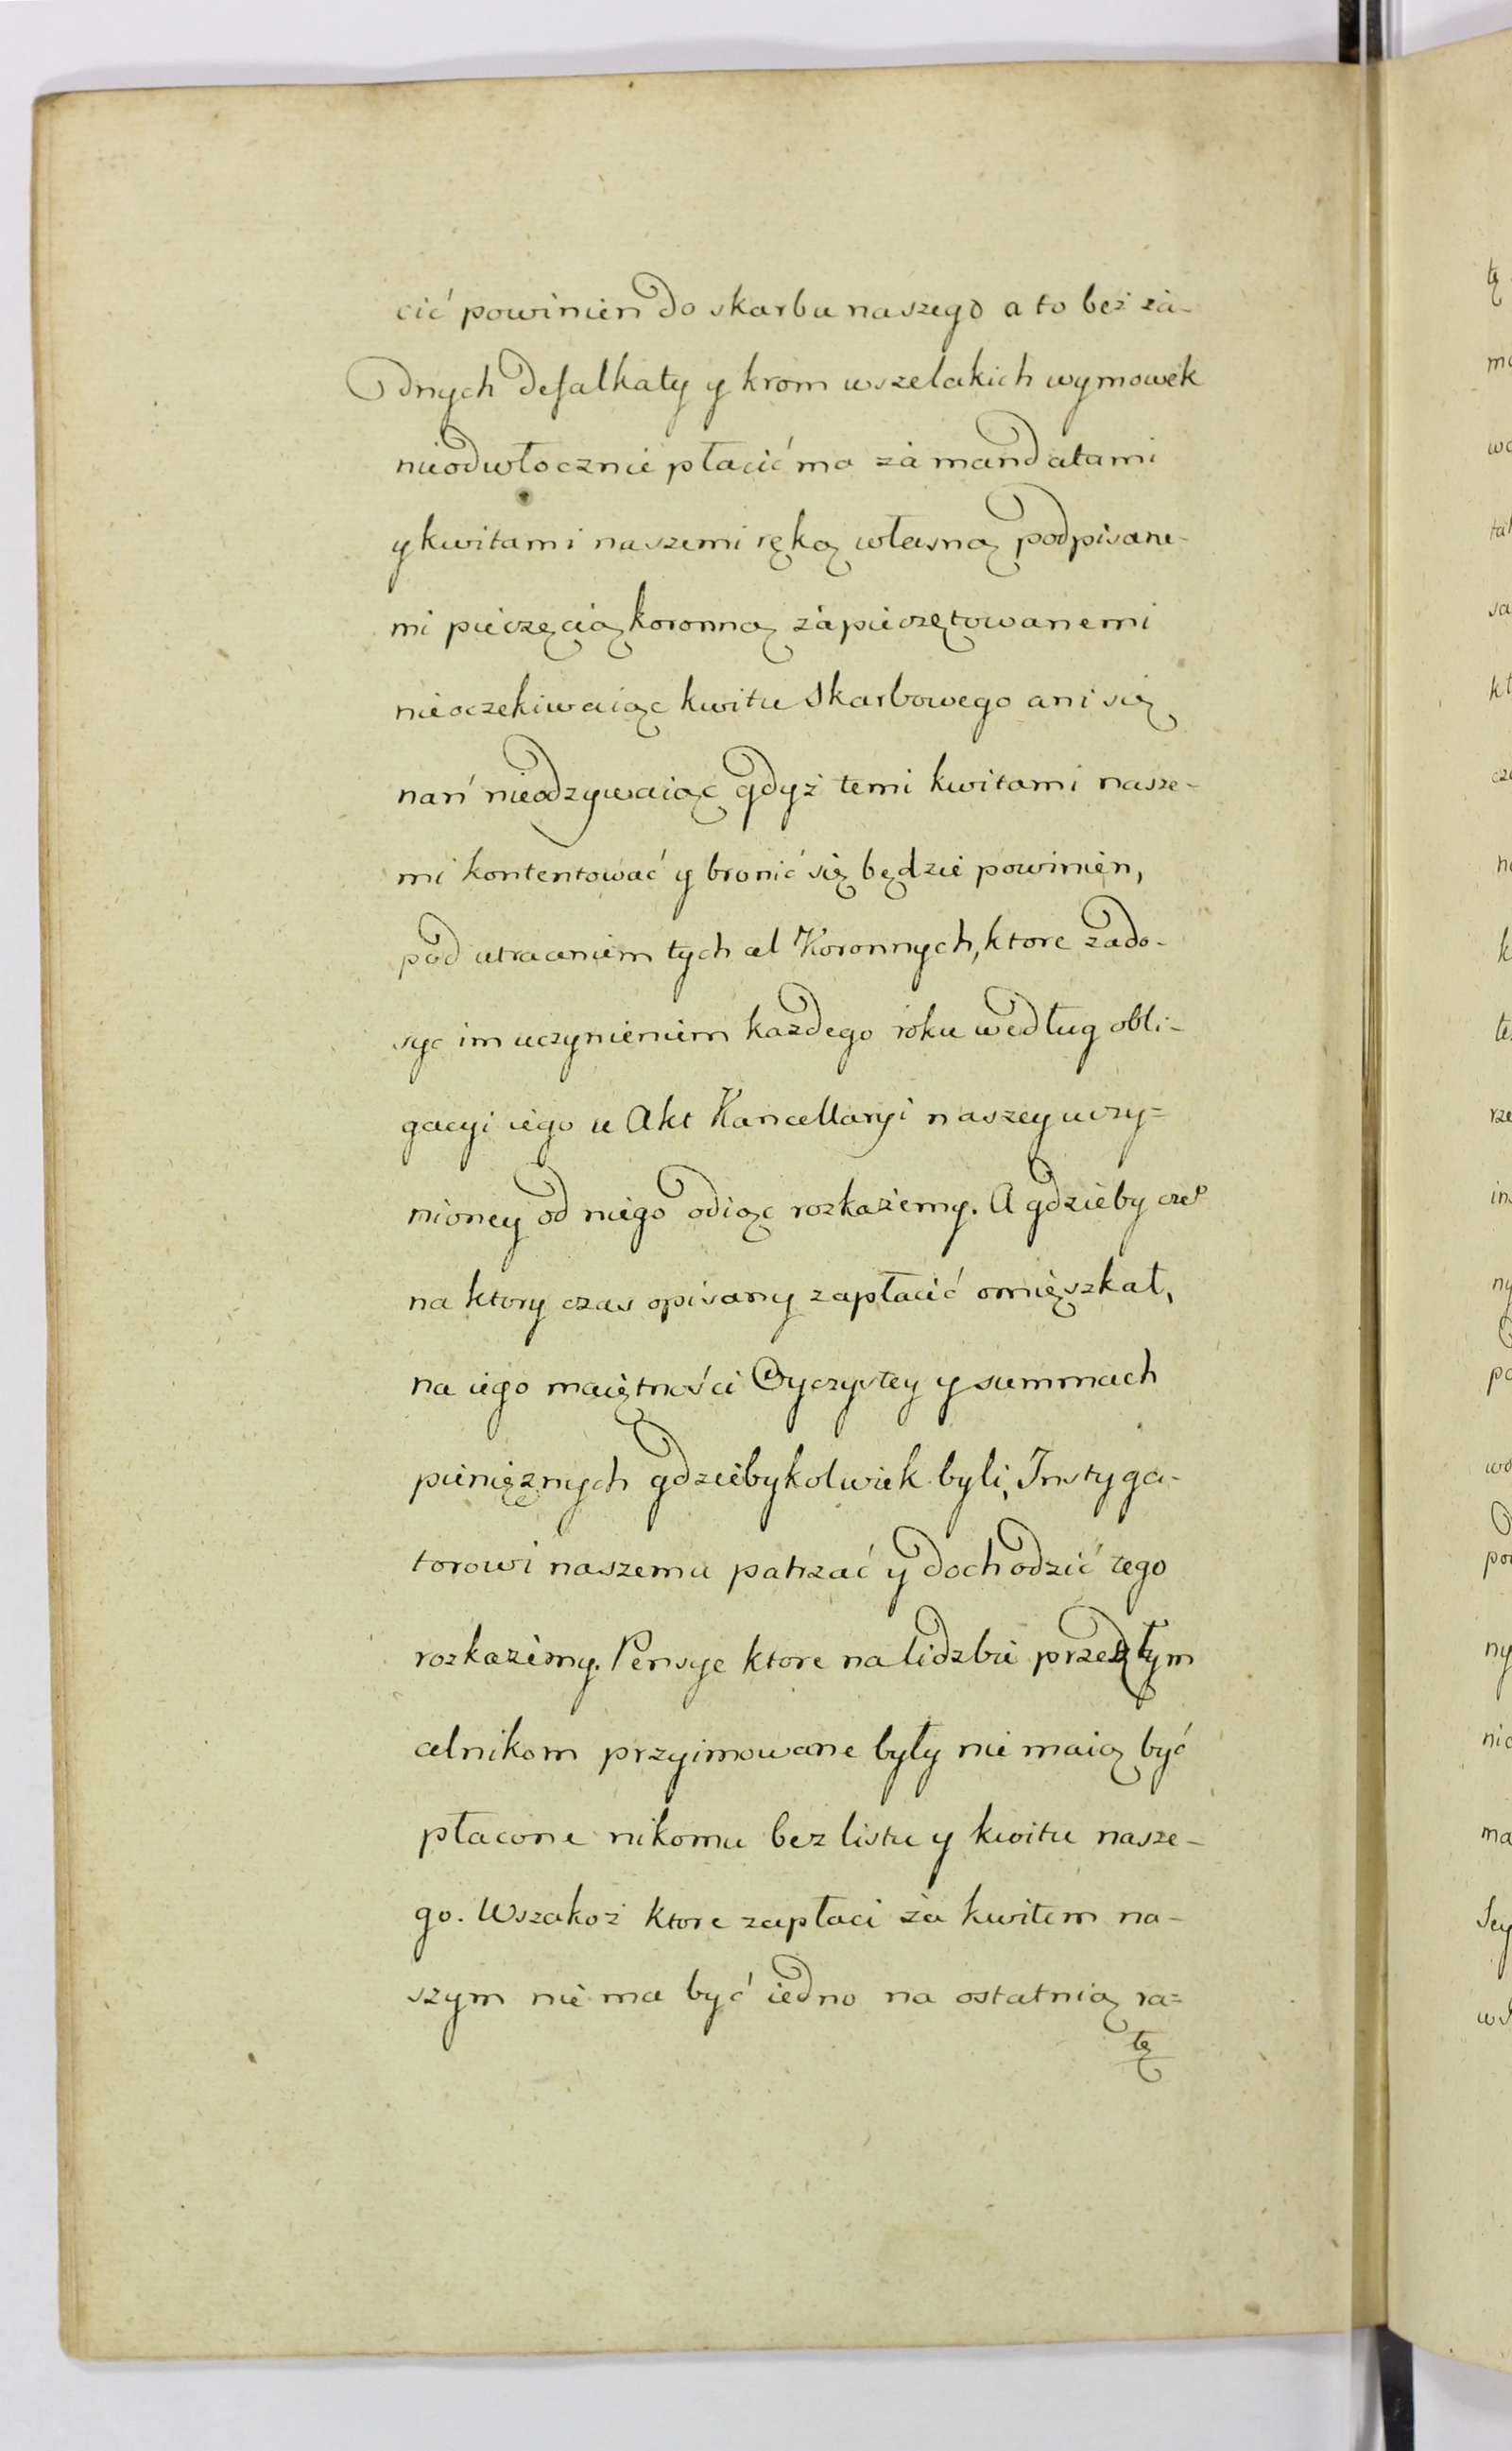 cić powinien do skarbu naszego a to bez ża-
dnych defalkaty y krom wszelakich wymowek
nieodwłocznie płacić ma za mandatami
y kwitami naszemi ręką własną podpisane-
mi pieczęcią koronną zapieczętowanemi
nieoczekiwaiąc kwitu Skarbowego ani się
nań nieodzywaiąc gdyż temi kwitami nasze-
mi kontentować y bronić się będzie powinien,
pod utraceniem tych cel Koronnych, ktore zado-
syc im uczynieniem kazdego roku według obli-
gacyi iego u Akt Kancellaryi naszey uczy=
nioney od niego odiąc rozkażemy. A gdzieby czeº
na ktory czas opisany zapłacić omięszkał,
na iego maiętności Oyczystey y summach
pieniężnych gdzieбykolwiek byli, Instyga-
torowi naszemu patrzać y dochodzić tego
rozkażemy. Pensye ktore na lidzbie przedtym
celnikom przyimowane były nie maią być
płacone nikomu bez listu y kwitu nasze-
go. Wszakoż ktore zapłaci za kwitem na-
szym nie ma być iedno na ostatnią ra=
tę
tę
wo
sa
kt
k
ny
ma